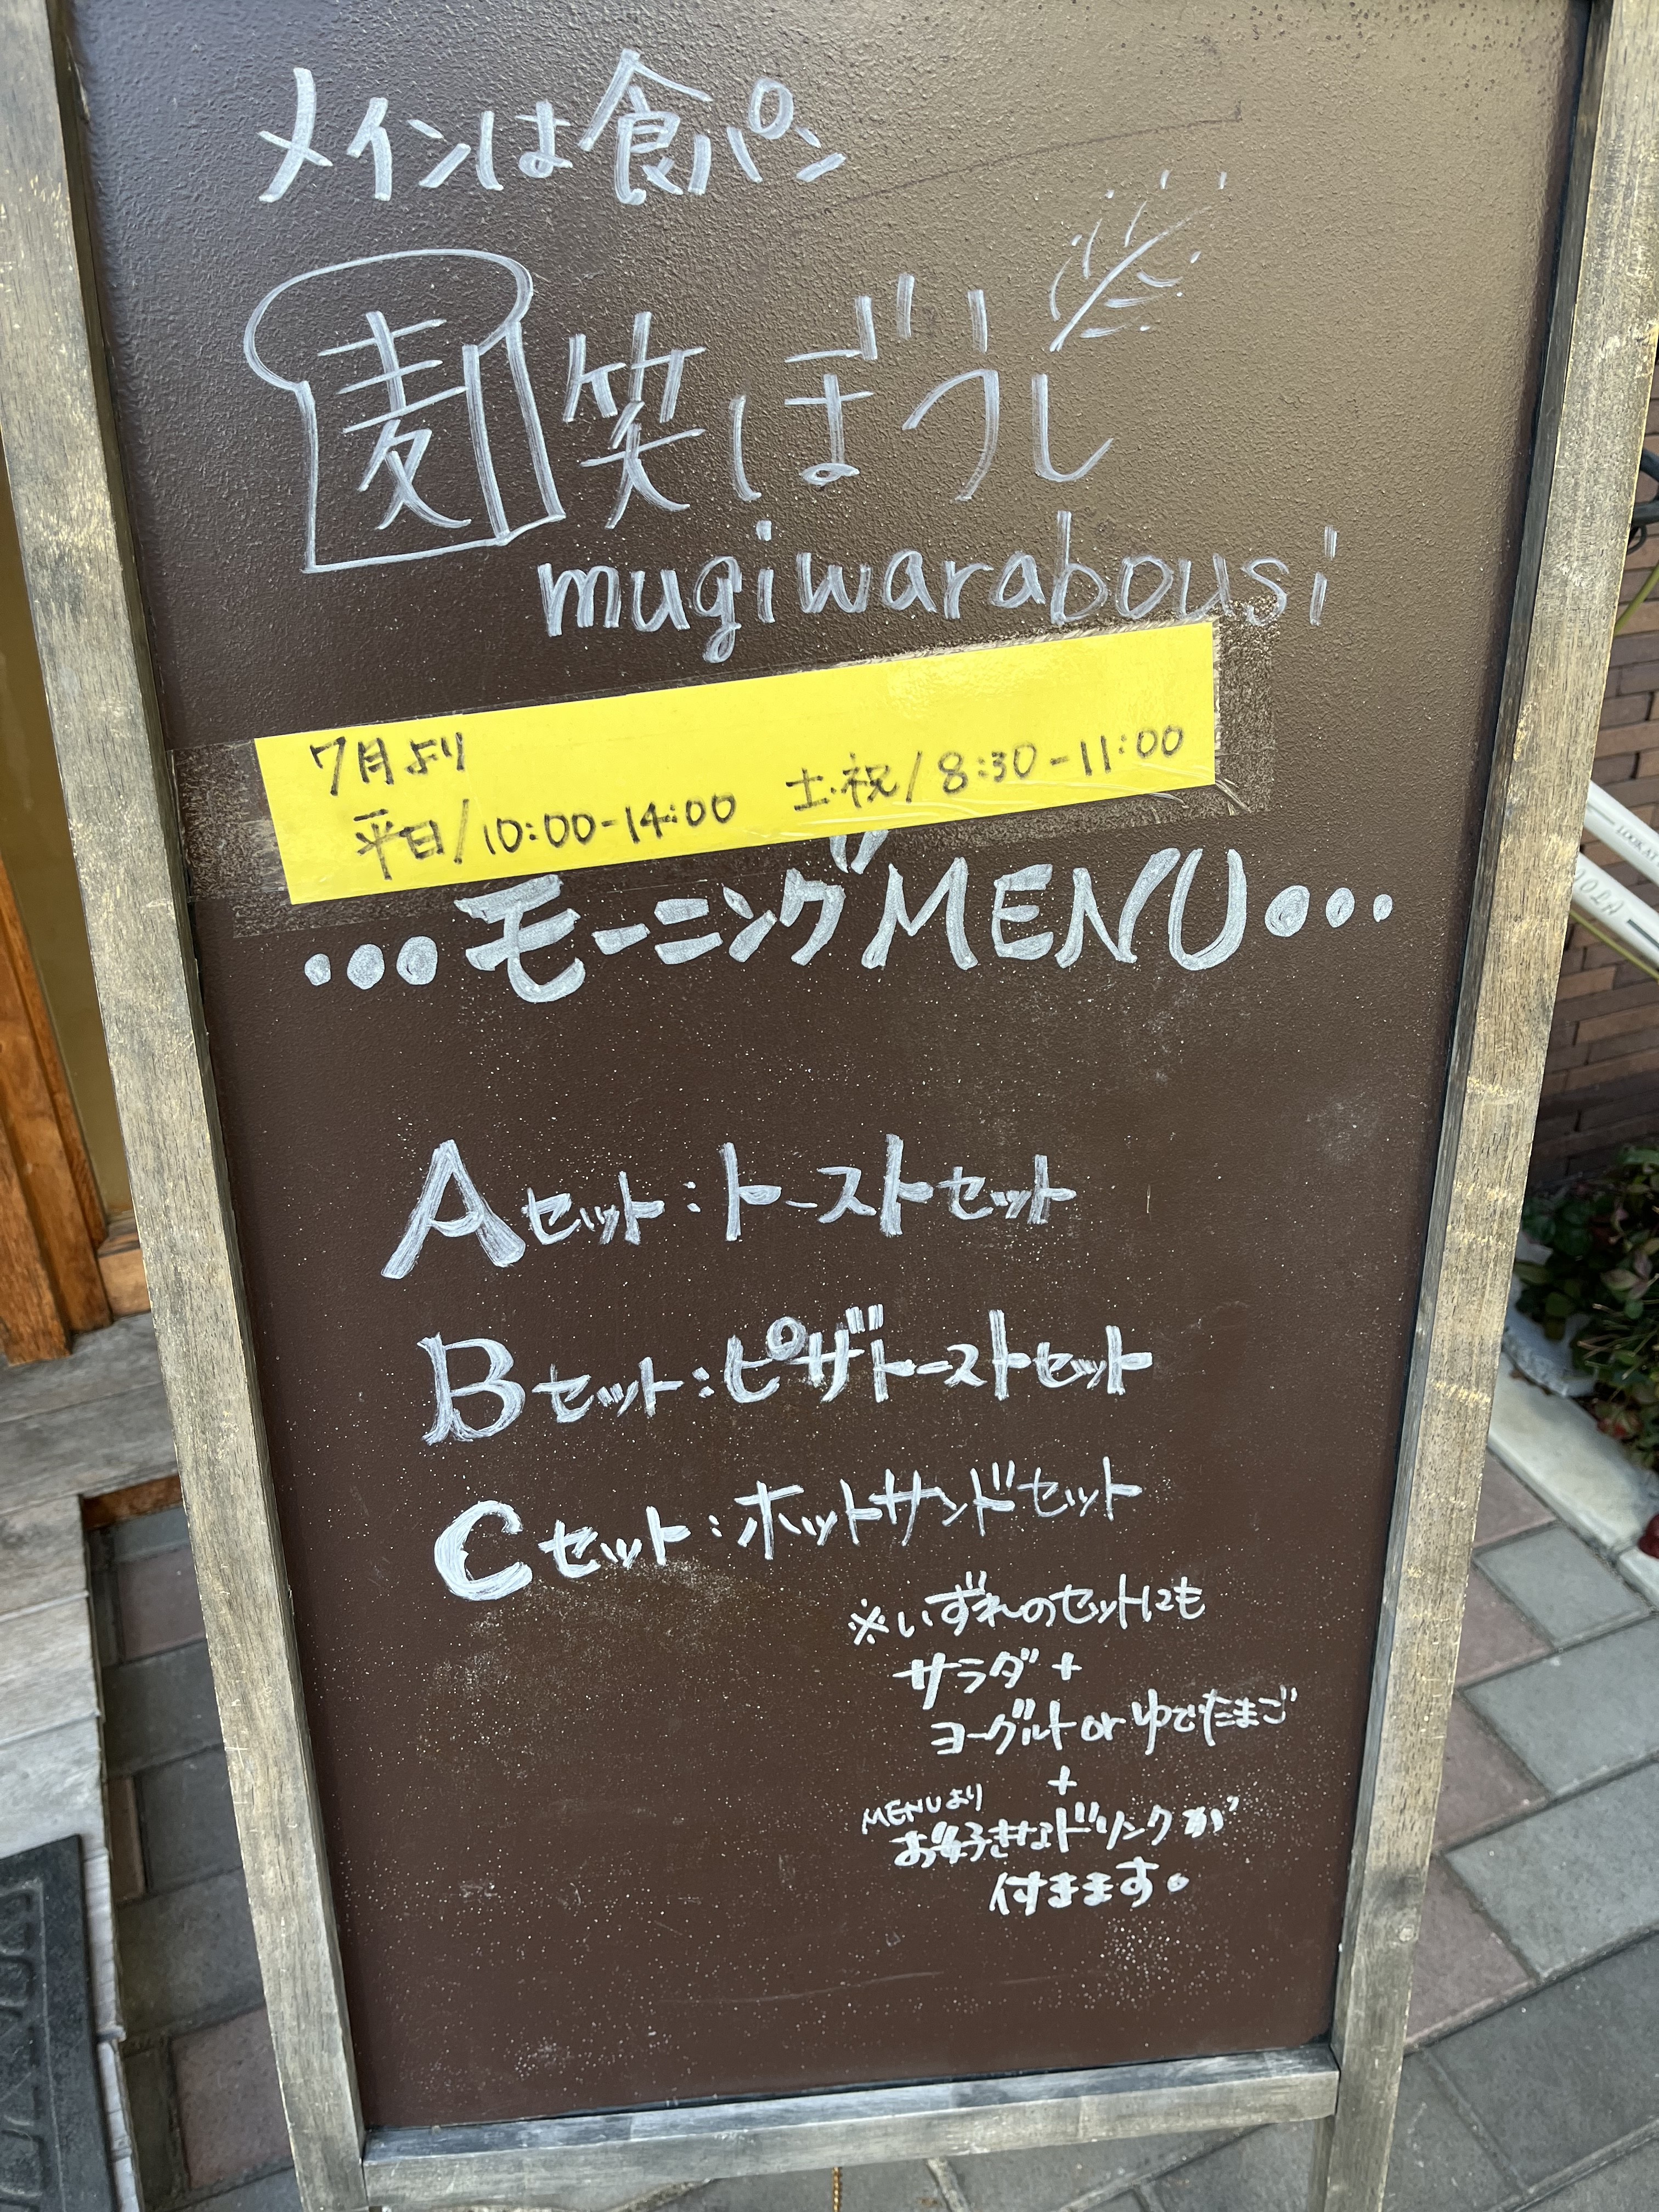 メインは食パン
麦笑ぼうし
mugiwarabousi
7月より
平日/10:00-14:00 土・祝/8:30-11:00
•••モーニングMENU•••
Aセット:トーストセット
Bセット:ピザトーストセット
Cセット:ホットサンドセット
※いずれのセットにも
サラダ+
ヨーグルトorゆでたまご
+
MENUより
お好きなドリンクが
付きます。